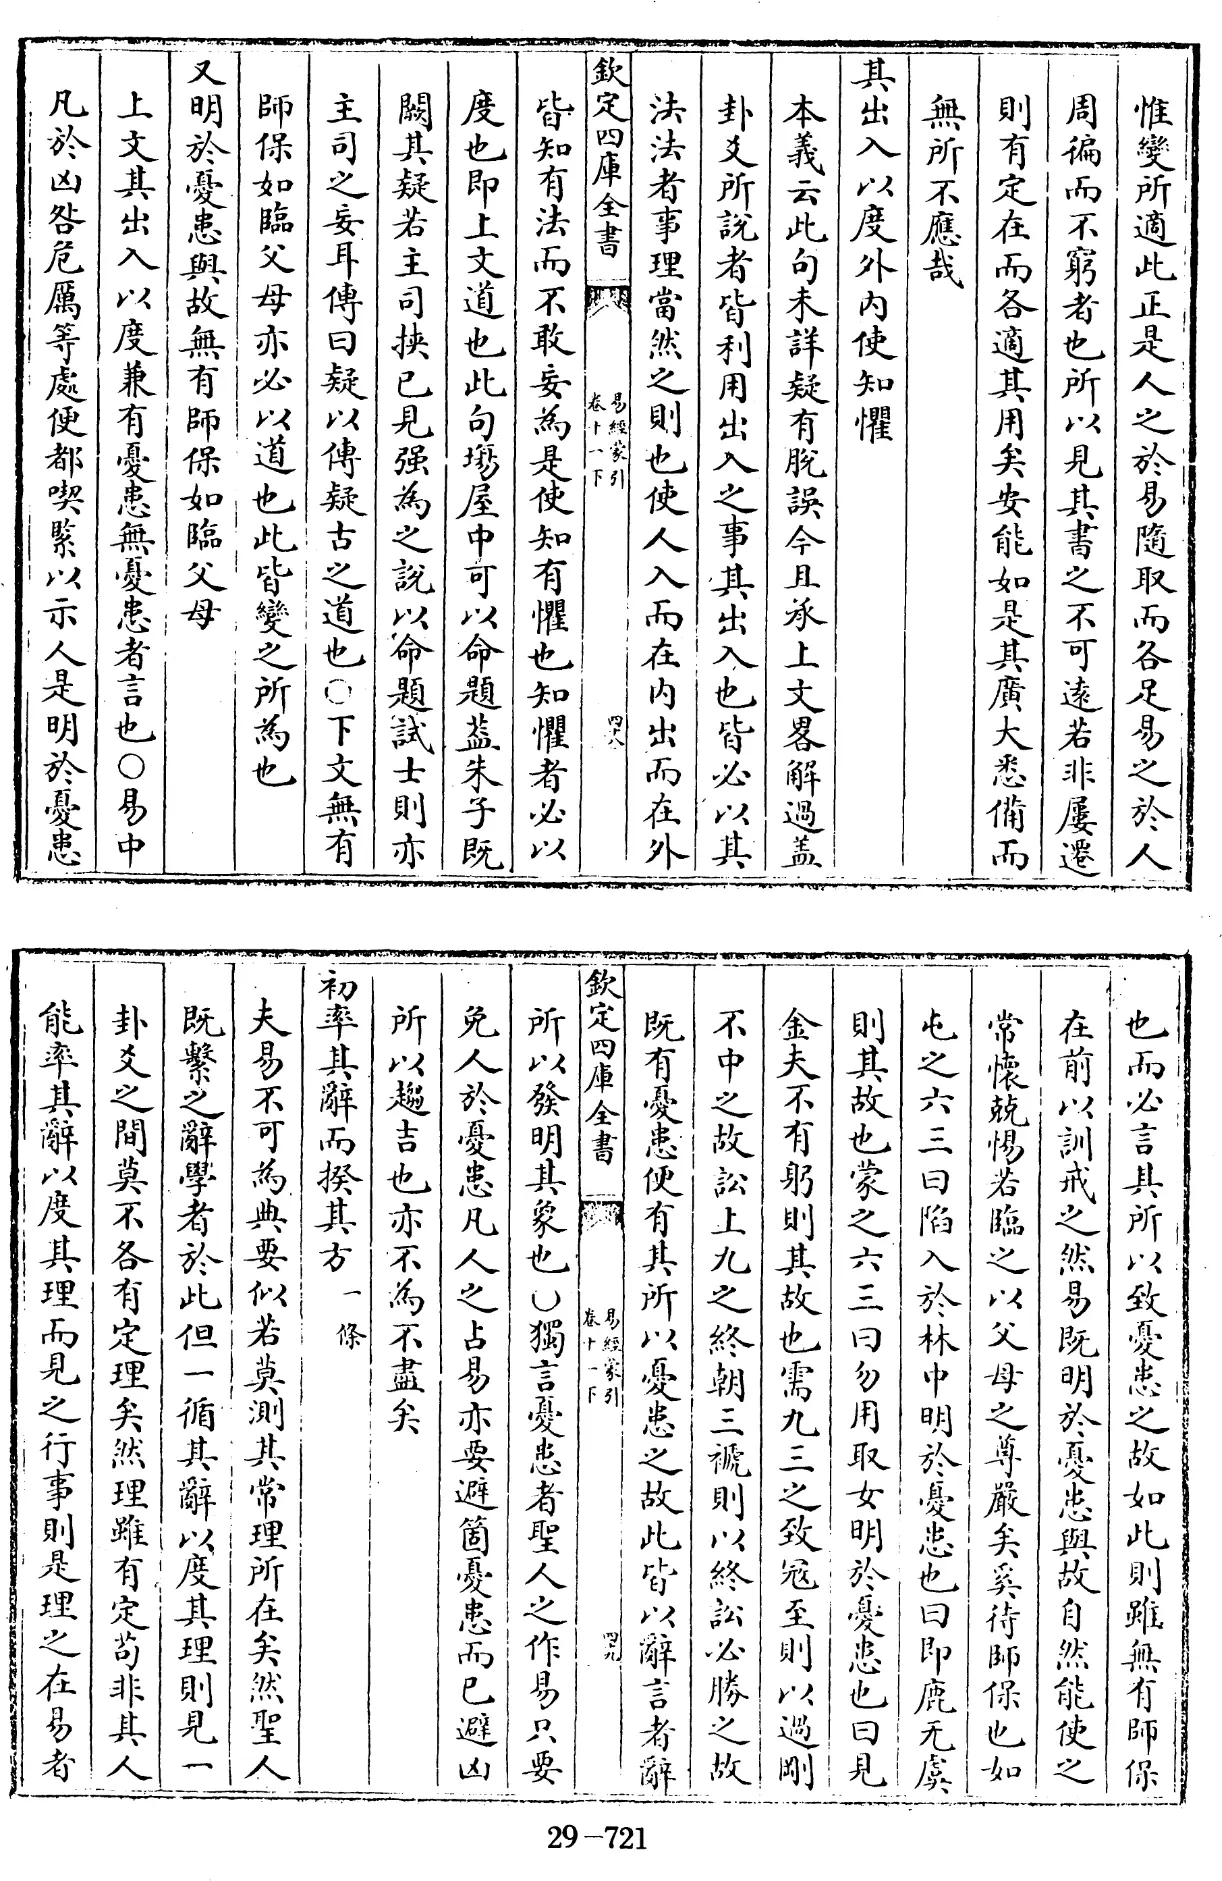 惟變所適此正是人之於易隨取而各足易之於人
周徧而不窮者也所以見其書之不可逺若非屢遷
則有定在而各適其用矣安能如是其廣大悉備而
無所不應哉
其出入以度外内使知懼
本義云此句未詳疑有脫誤今且承上文畧解過盖
卦爻所說者皆利用出入之事其出入也皆必以其
法法者事理當然之則也使人入而在内出而在外
欽定四庫全書
易經蒙引
卷十一下
四十八
皆知有法而不敢妄為是使知有懼也知懼者必以
度也即上文道也此句塲屋中可以命題盖朱子既
闕其疑若主司挾已見强為之說以命題試士則亦
主司之妄耳傳曰疑以傳疑古之道也○下文無有
師保如臨父母亦必以道也此皆變之所為也
又明於憂患與故無有師保如臨父母
上文其出入以度兼有憂患無憂患者言也○易中
凡於凶咎危厲等處便都喫緊以示人是明於憂患
也而必言其所以致憂患之故如此則雖無有師保
在前以訓戒之然易既明於憂患與故自然能使之
常懷兢惕若臨之以父母之尊嚴矣奚待師保也如
屯之六三曰陷入於林中明於憂患也曰即鹿无虞
則其故也蒙之六三曰勿用取女明於憂患也曰見
金夫不有躬則其故也需九三之致冦至則以過剛
不中之故訟上九之終朝三褫則以終訟必勝之故
既有憂患便有其所以憂患之故此皆以辭言者辭
欽定四庫全書
易經蒙引
卷十一下
四九
所以發明其象也○獨言憂患者聖人之作易只要
免人於憂患凡人之占易亦要避箇憂患而已避凶
所以趨吉也亦不為不盡矣
初率其辭而揆其方 一條
夫易不可為典要似若莫測其常理所在矣然聖人
既繫之辭學者於此但一循其辭以度其理則見一
卦爻之間莫不各有定理矣然理雖有定苟非其人
能率其辭以度其理而見之行事則是理之在易者
29-721